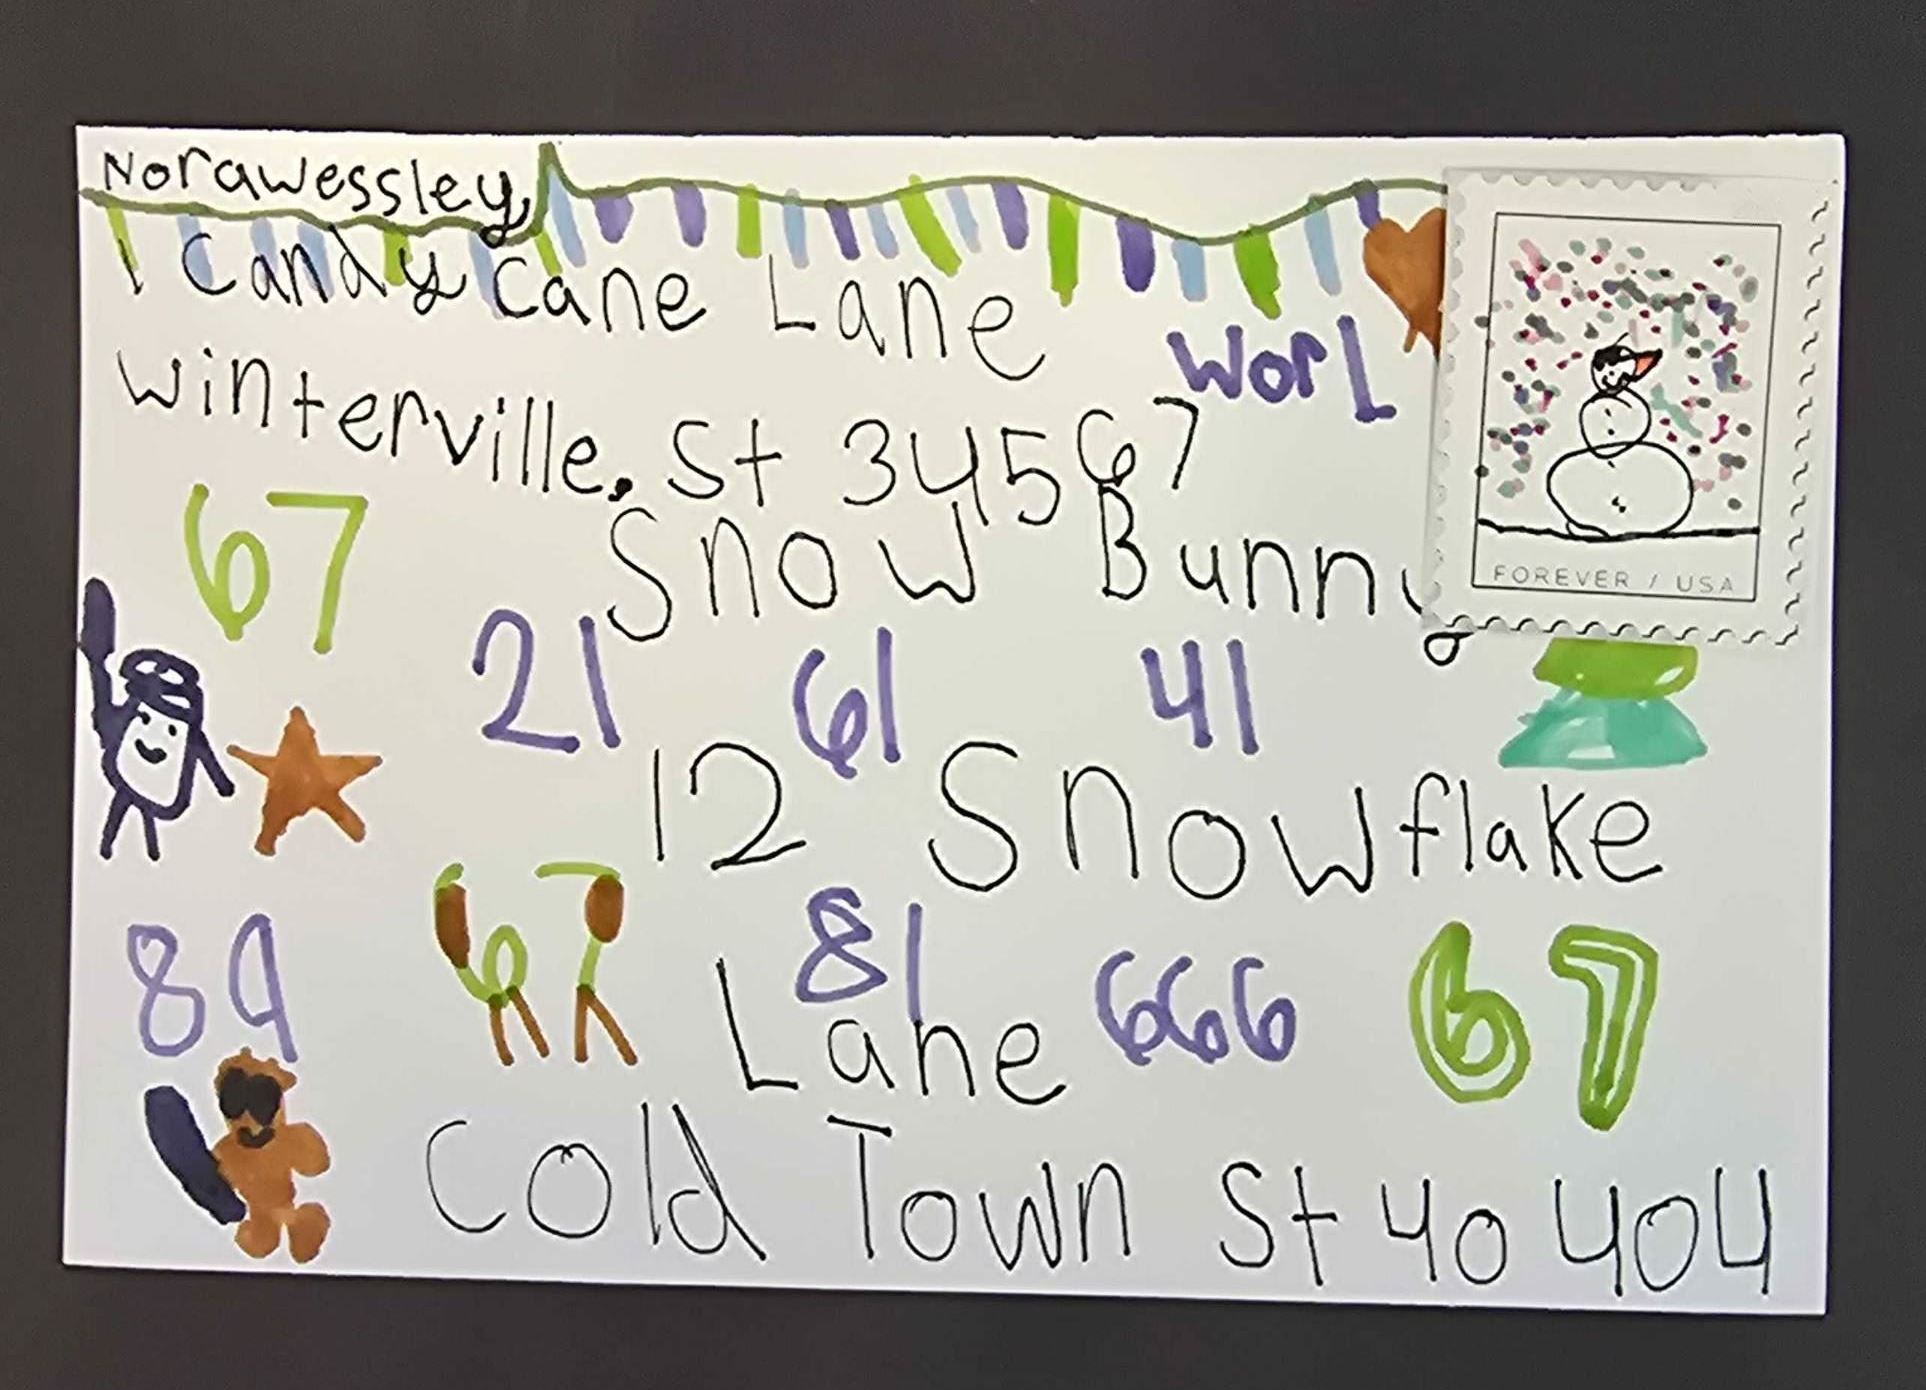 Norawessley
1 Candy Cane Lane
Worl
Winterville, St 34567
67
Snow Bunny
FOREVER / USA
21 61 41
12 Snowflake
89 67 81 666 67
Lane
Cold Town St 40404